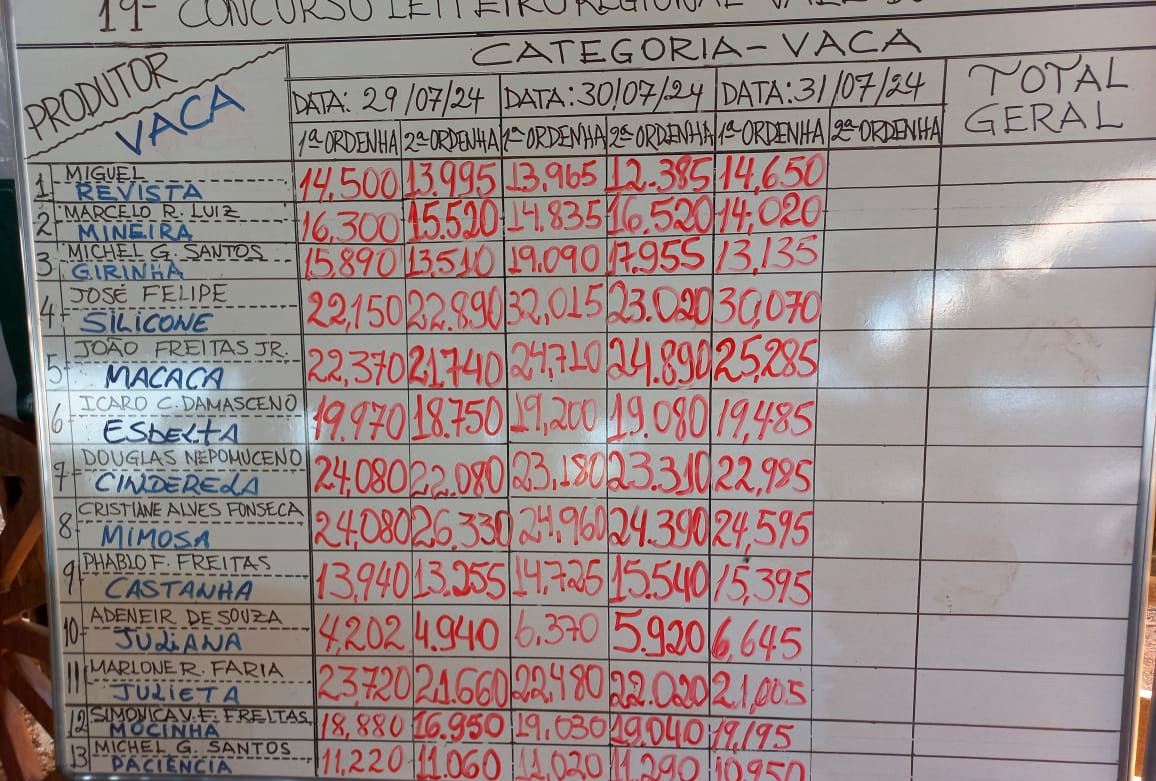 19º CONCURSO LEITEIRO REGIONAL
CATEGORIA - VACA
PRODUTOR
VACA
DATA: 29/07/24 DATA: 30/07/24 DATA: 31/07/24
TOTAL
GERAL
1ª ORDENHA 2ª ORDENHA 1ª ORDENHA 2ª ORDENHA 1ª ORDENHA 2ª ORDENHA
1 MIGUEL
REVISTA
14,500 13.995 13,965 12.385 14,650
2 MARCELO R. LUIZ
MINEIRA
16,300 15.520 14.835 16.520 14,020
3 MICHEL G. SANTOS
GIRINHA
15.890 13,510 19.090 17.955 13,135
4 JOSÉ FELIPE
SILICONE
22,150 22.890 32,015 23.020 30,070
5 JOÃO FREITAS JR.
MACACA
22,370 21740 24,710 24.890 25,285
6 ICARO C. DAMASCENO
ESBELTA
19.970 18.750 19,200 19.080 19,485
7 DOUGLAS NEPOMUCENO
CINDERELA
24,080 22.080 23,180 23.310 22,985
8 CRISTIANE ALVES FONSECA
MIMOSA
24,080 26,330 24,960 24.390 24,595
9 PHABLO F. FREITAS
CASTANHA
13,940 13.255 14,725 15.540 15,395
10 ADENEIR DE SOUZA
JULIANA
4,202 4.940 6,370 5.920 6,645
11 MARLONE R. FARIA
JULIETA
23,720 21.660 22,480 22.020 21,005
12 SIMONICA V. F. FREITAS
MOCINHA
18,880 16.950 19.030 19.040 19,195
13 MICHEL G. SANTOS
PACIÊNCIA
11,220 11.060 11,020 11.290 10,950